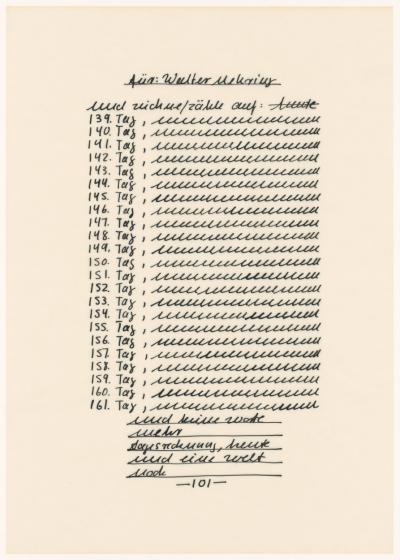 für: Walter Mehring
und zeichne/zähle auf: heute
139. Tag,
140. Tag,
141. Tag,
142. Tag,
143. Tag,
144. Tag,
145. Tag,
146. Tag,
147. Tag,
148. Tag,
149. Tag,
150. Tag,
151. Tag,
152. Tag,
153. Tag,
154. Tag,
155. Tag,
156. Tag,
157. Tag,
158. Tag,
159. Tag,
160. Tag,
161. Tag,
und keine worte
mehr
tagsrechnung, heute
und eine welt
noch
—101—